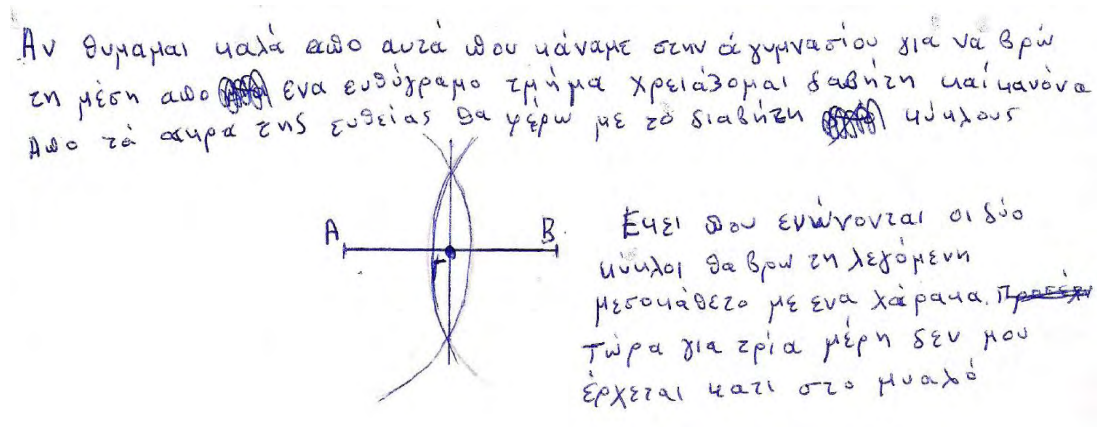 Αν θυμαμαι καλά απο αυτά που κάναμε στην ά γυμνασίου για να βρώ
τη μέση απο ενα ευθύγραμο τμήμα χρειάζομαι δαβήτη και κανόνα
Απο τά ακρα της ευθείας θα φέρω με το διαβήτη κύκλους
A B
Γ
Εκει που ενώνονται οι δύο
κύκλοι θα βρω τη λεγόμενη
μεσοκάθετο με ενα χάρακα.
Τώρα για τρία μέρη δεν μου
έρχεται κατι στο μυαλό